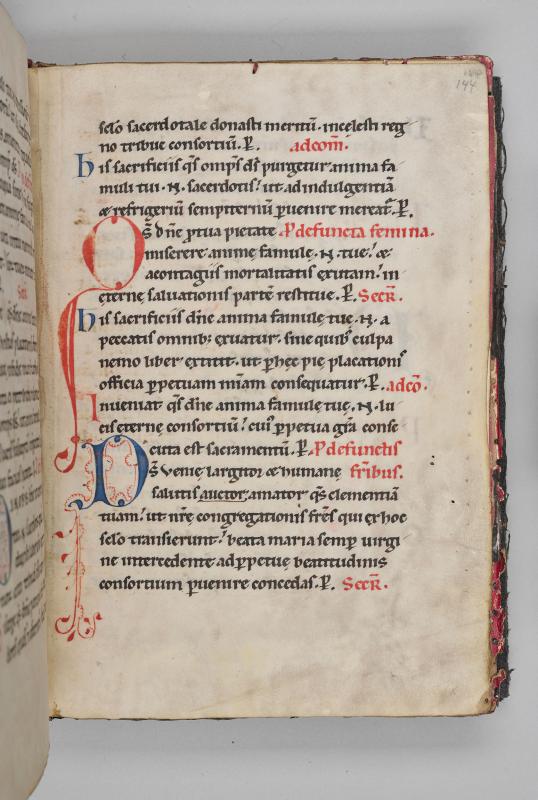 144
sc̄lo sacerdotale donasti meritū. in celesti reg
no tribue consortiū. P̲. ad com̄.
His sacrificiis q̄s om̄ps d̄s purgetur anima fa
muli tui .N. sacerdotis! ut ad indulgentiā
& refrigeriū sempiternū p̲uenire mereat᷑. P̲.
Qs d̄ne p̲ tua pietate P̲ defuncta femina.
miserere anime famulę .N. tue! &
a contagiis mortalitatis exutam! in
ęterne saluationis partē restitue. P̲. Secr̄.
His sacrificiis d̄ne anima famulę tuę .N. a
peccatis omnib; exuatur. sine quib; culpa
nemo liber extitit. ut p̲ hec pię placationis
officia p̲petuam mīam consequatur. P̲. ad cō.
Inueniat q̄s d̄ne anima famulę tuę .N. lu
cis ęterne consortiū! cui᷒ p̲petua gr̄a conse
cuta est sacramentū. P̲. P̲ defunctis
Ds̄ uenię largitor & humanę fr̄ibus.
salutis auctor. amator q̄s clementiā
tuam! ut nr̄ę congregationis fr̄es qui ex hoc
sc̄lo transierunt! beata maria semp̲ uirgi
ne intercedente ad p̲petuę beatitudinis
consortium p̲uenire concedas. P̲. Secr̄.